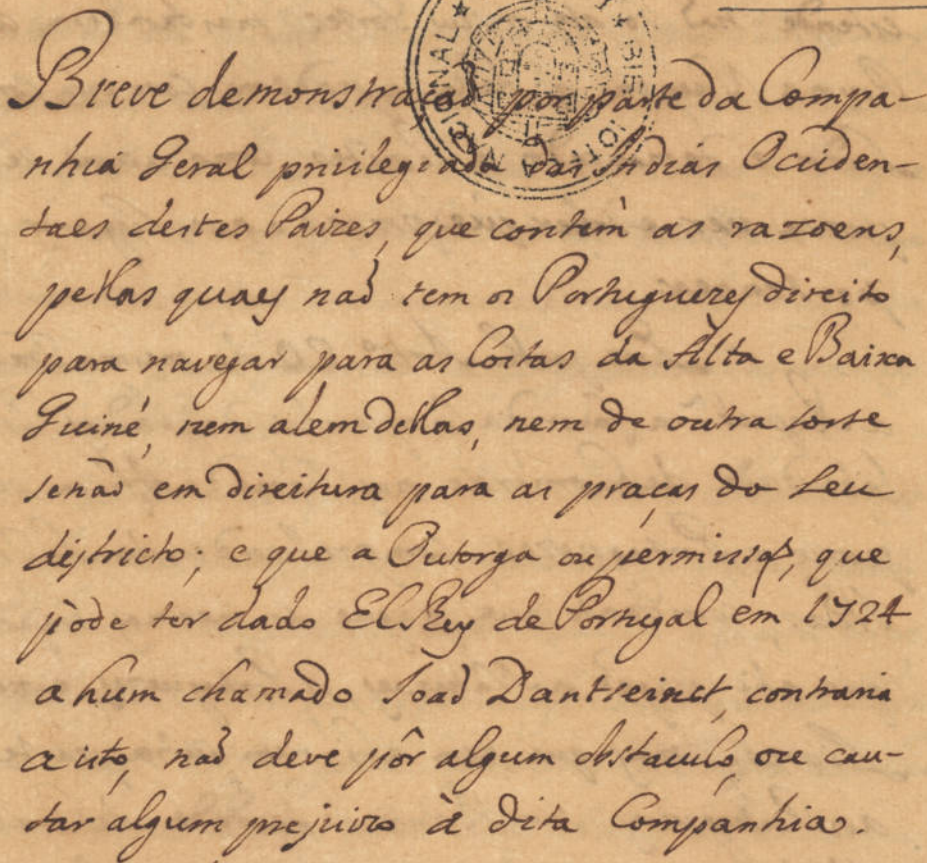 Breve demonstraçaõ por parte da Compa-
nhia Geral privilegiada das Indias Occiden-
taes destes Paizes, que contèm as razoens,
pellas quaes naõ tem os Portuguezes direito
para navegar para as Costas da Alta e Baixa
Guiné, nem alem dellas, nem de outra sorte
senaõ em direitura para as praças do seu
districto; e que a Outorga ou permissaõ, que
pòde ter dado ElRey de Portugal em 1724
a hum chamado Joaõ Dantseinct, contraria
a isto, naõ deve pôr algum obstaculo, ou cau-
sar algum prejuizo à dita Companhia.